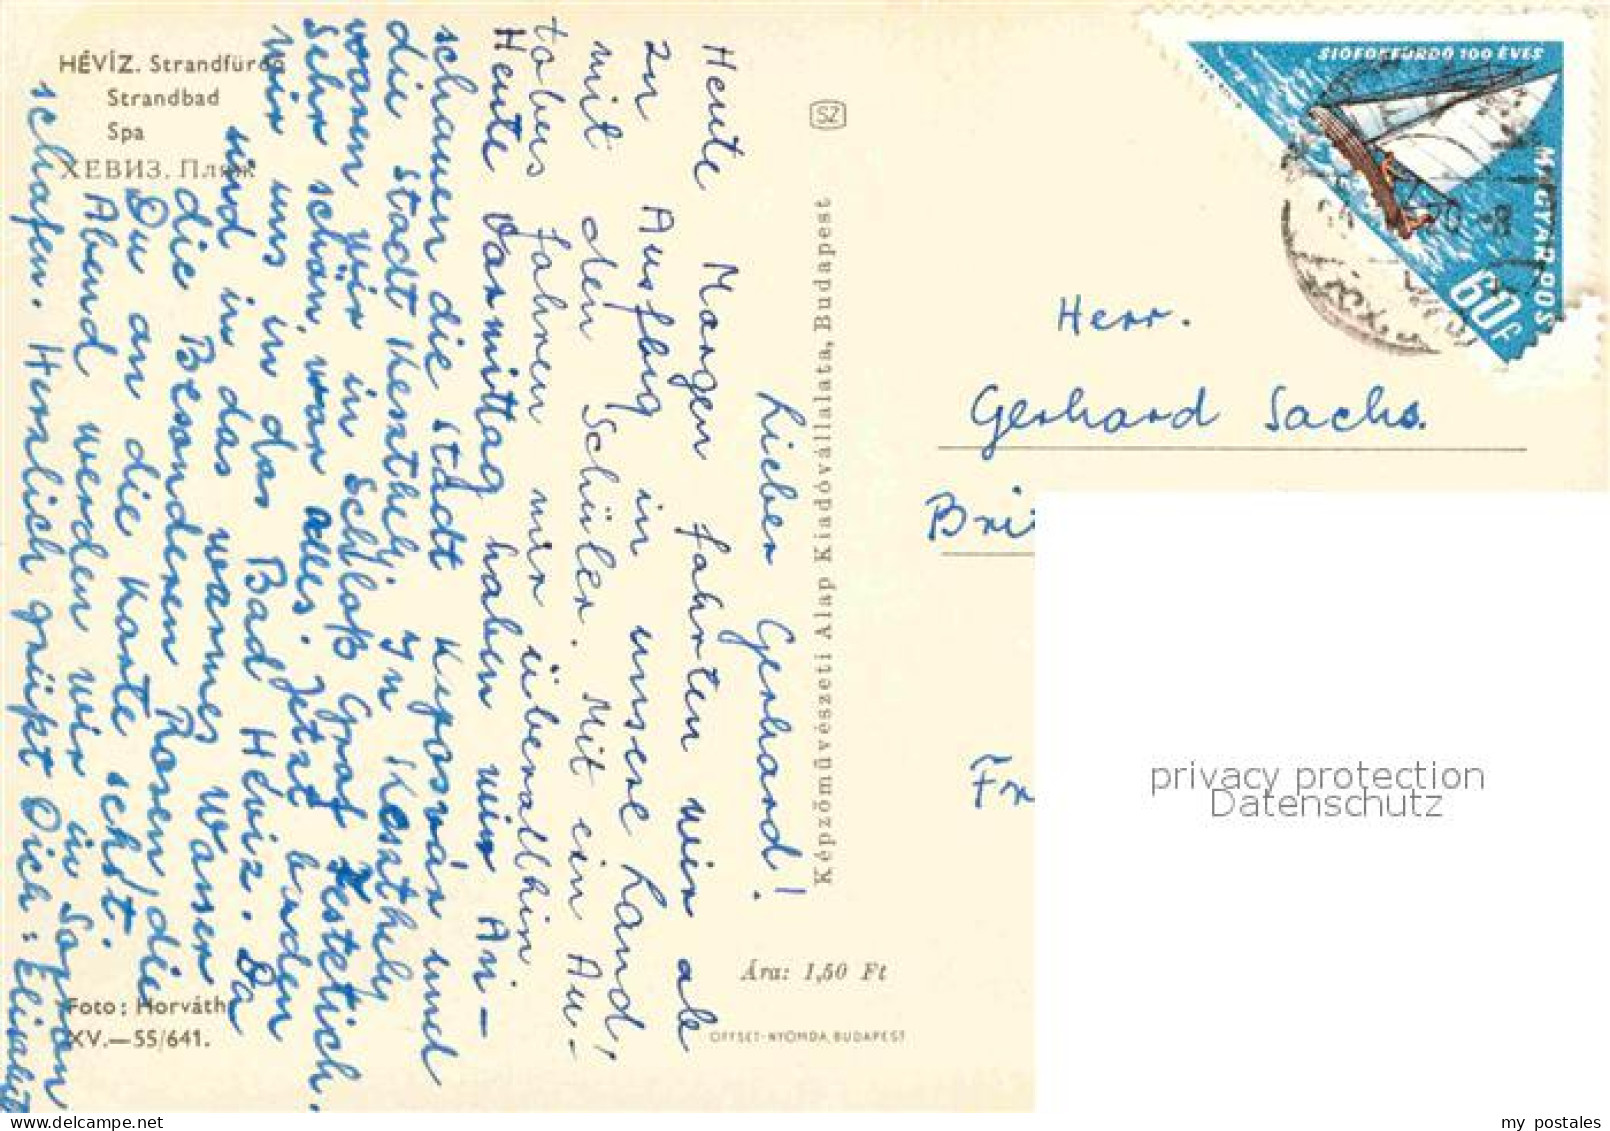 HÉVÍZ. Strandfürdő
Strandbad
Spa
ХЕВИЗ. Пляж
Lieber Gerhard!
Heute Morgen fahrten wir ab
zu Ausflug in unsere Land!
mit den Schüler. Mit ein Au-
tobus fahren wir überallhin
Heute Vormittag haben wir An-
schauen die Stadt Kaposvár und
die Stadt Keszthely. In Keszthely
waren wir in Schloß Graf Festetich.
Sehr schön war alles. Jetzt baden
wir uns in das Bad Hévíz. Da
sind in das warmes Wasser
die Besonderen Rosen, die
Du an die Karte sehst.
Abend werden wir in Sopron
schafen. Herzlich grüßt Dich: Elisabeth
Foto: Horváth
XV.—55/641.
SZ
Képzőművészeti Alap Kiadóvállalata, Budapest
Ára: 1,50 Ft
OFFSET-NYOMDA, BUDAPEST
SIÓFOKFÜRDŐ 100 ÉVES
MAGYAR POSTA
60f
Herr.
Gerhard Sachs.
privacy protection
Datenschutz
my postales